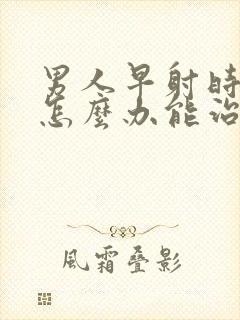 男人早射時
怎麼办能治
風霜叠影